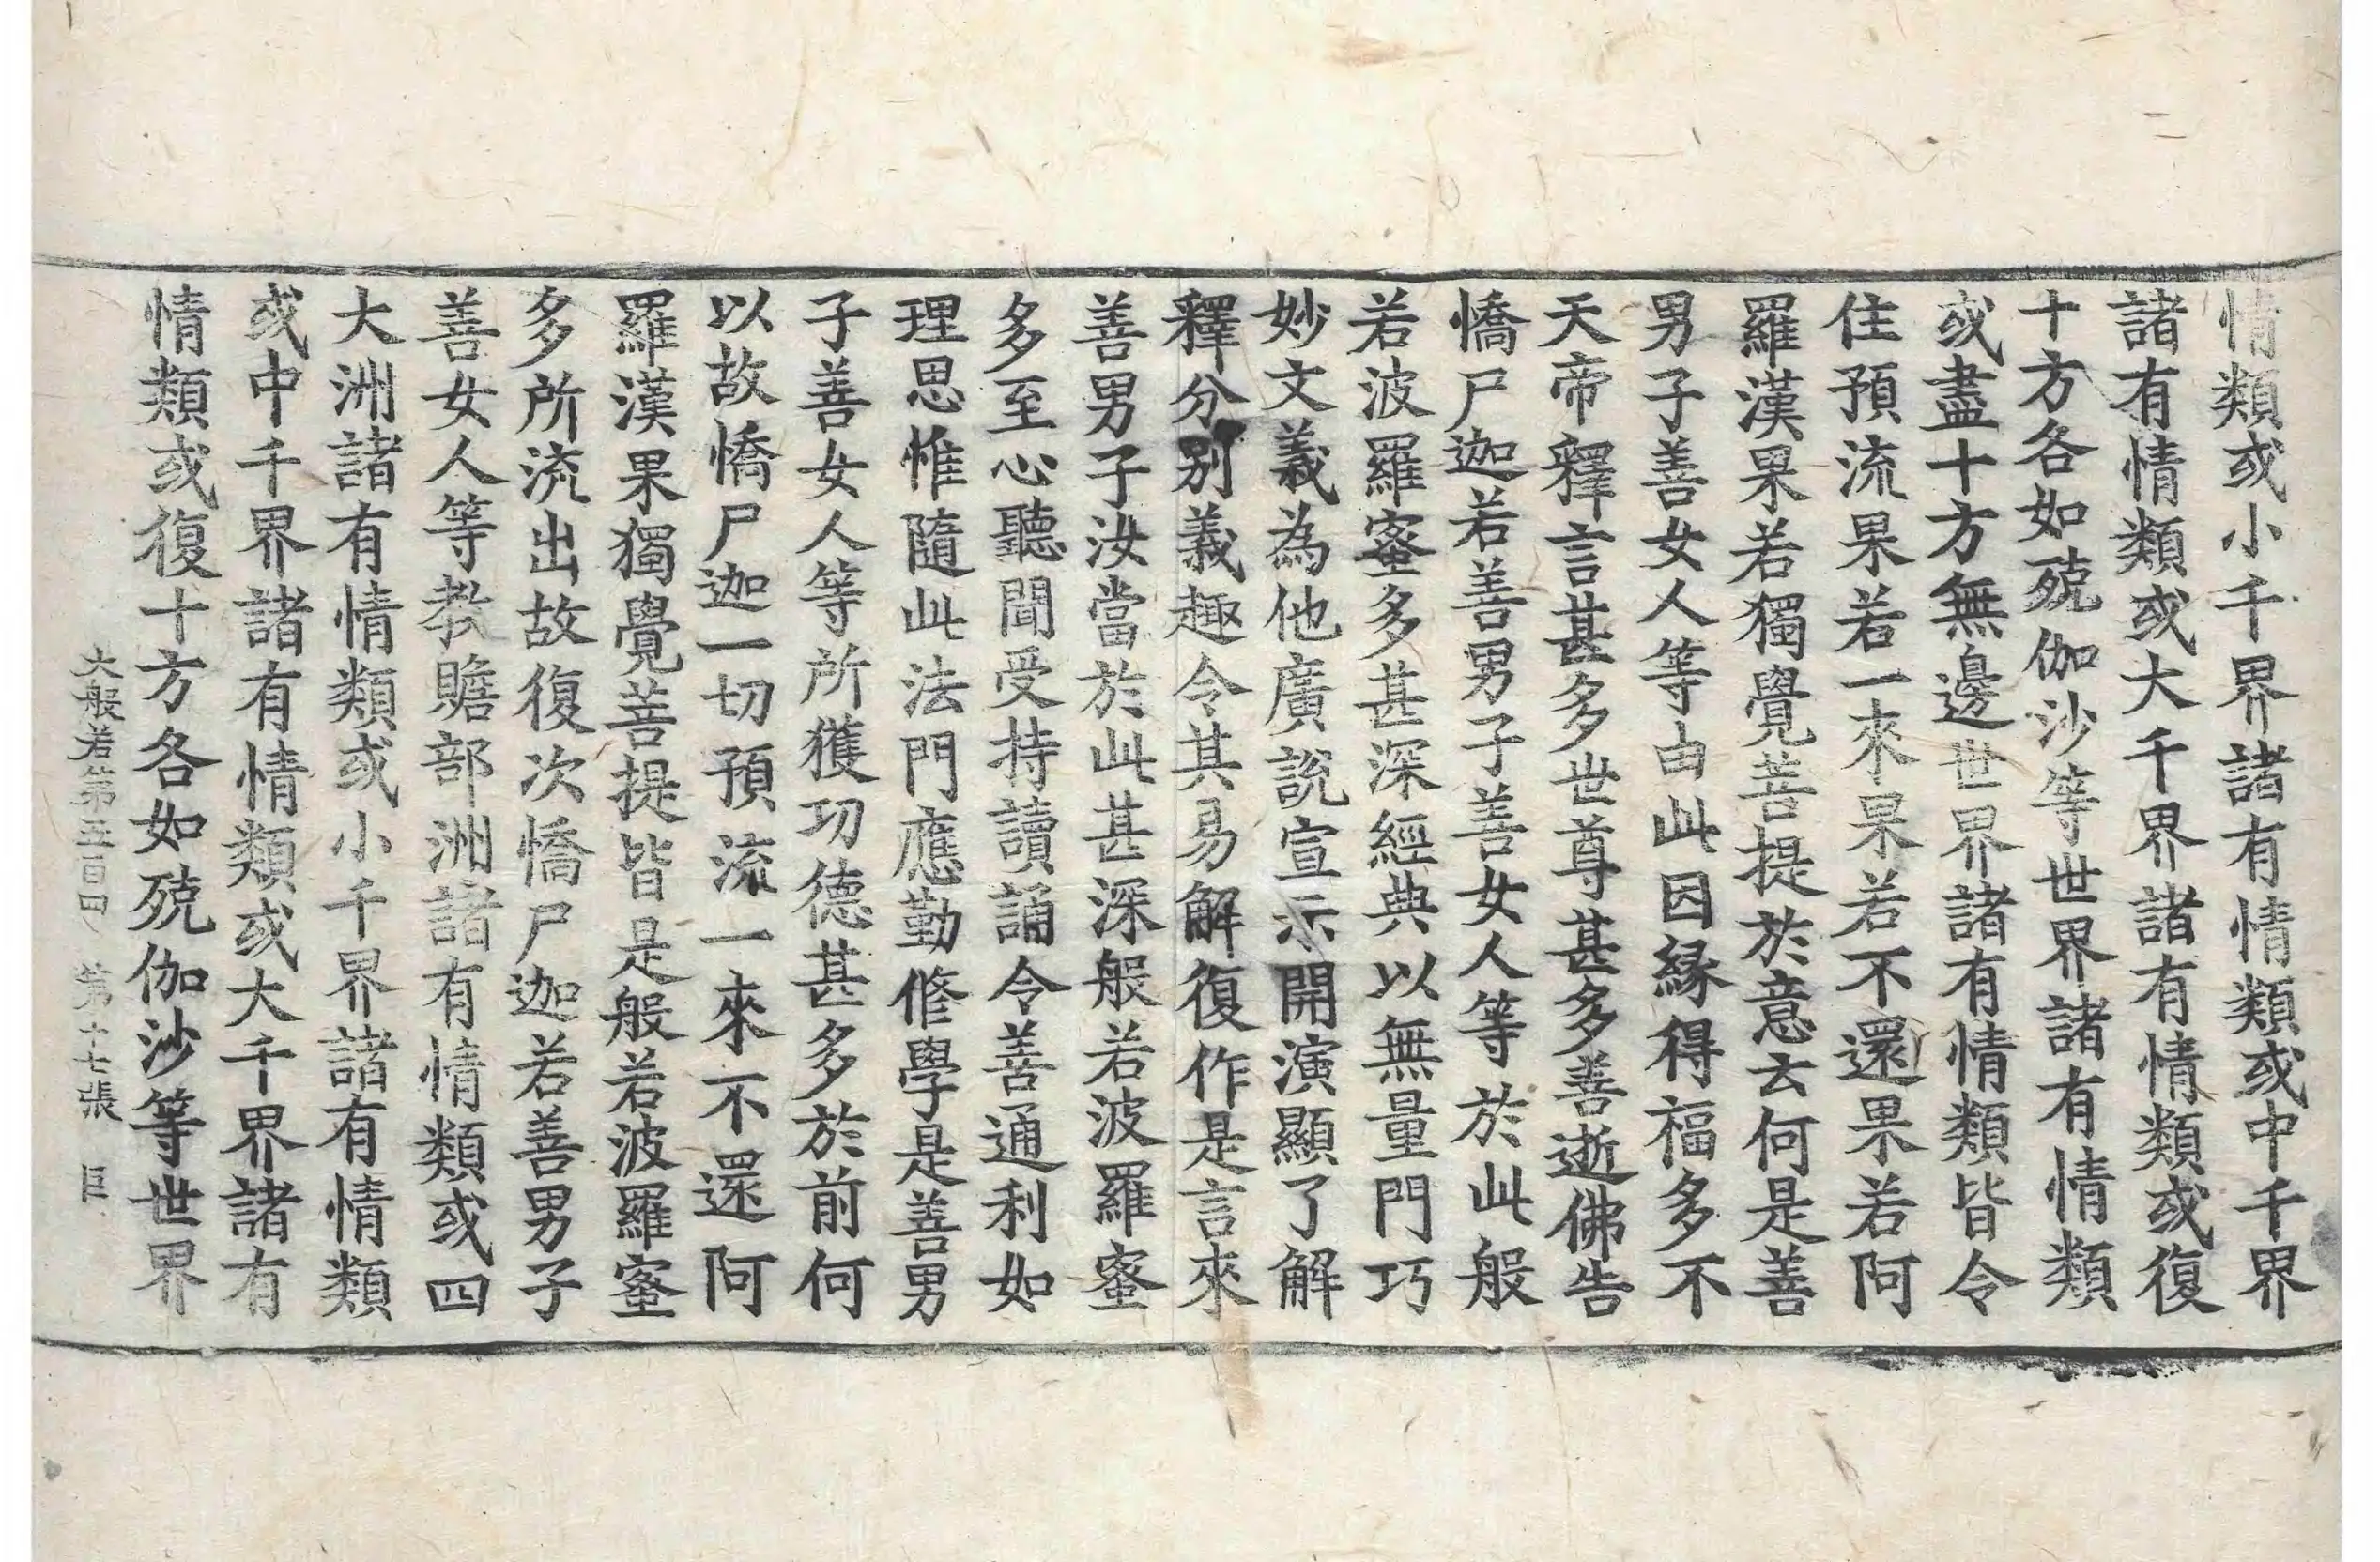 情類或小千界諸有情類或中千界
諸有情類或大千界諸有情類或復
十方各如殑伽沙等世界諸有情類
或盡十方無邊世界諸有情類皆令
住預流果若一來果若不還果若阿
羅漢果若獨覺菩提於意云何是善
男子善女人等由此因緣得福多不
天帝釋言甚多世尊甚多善逝佛告
憍尸迦若善男子善女人等於此般
若波羅蜜多甚深經典以無量門巧
妙文義為他廣說宣示開演顯了解
釋分別義趣令其易解復作是言來
善男子汝當於此甚深般若波羅蜜
多至心聽聞受持讀誦令善通利如
理思惟隨此法門應勤修學是善男
子善女人等所獲功德甚多於前何
以故憍尸迦一切預流一來不還阿
羅漢果獨覺菩提皆是般若波羅蜜
多所流出故復次憍尸迦若善男子
善女人等教贍部洲諸有情類或四
大洲諸有情類或小千界諸有情類
或中千界諸有情類或大千界諸有
情類或復十方各如殑伽沙等世界
大般若第五百四 第十七張 臣